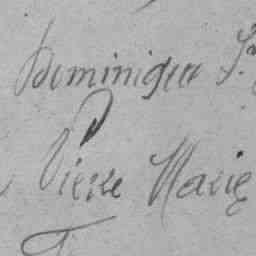 Dominique
Pierre Marie